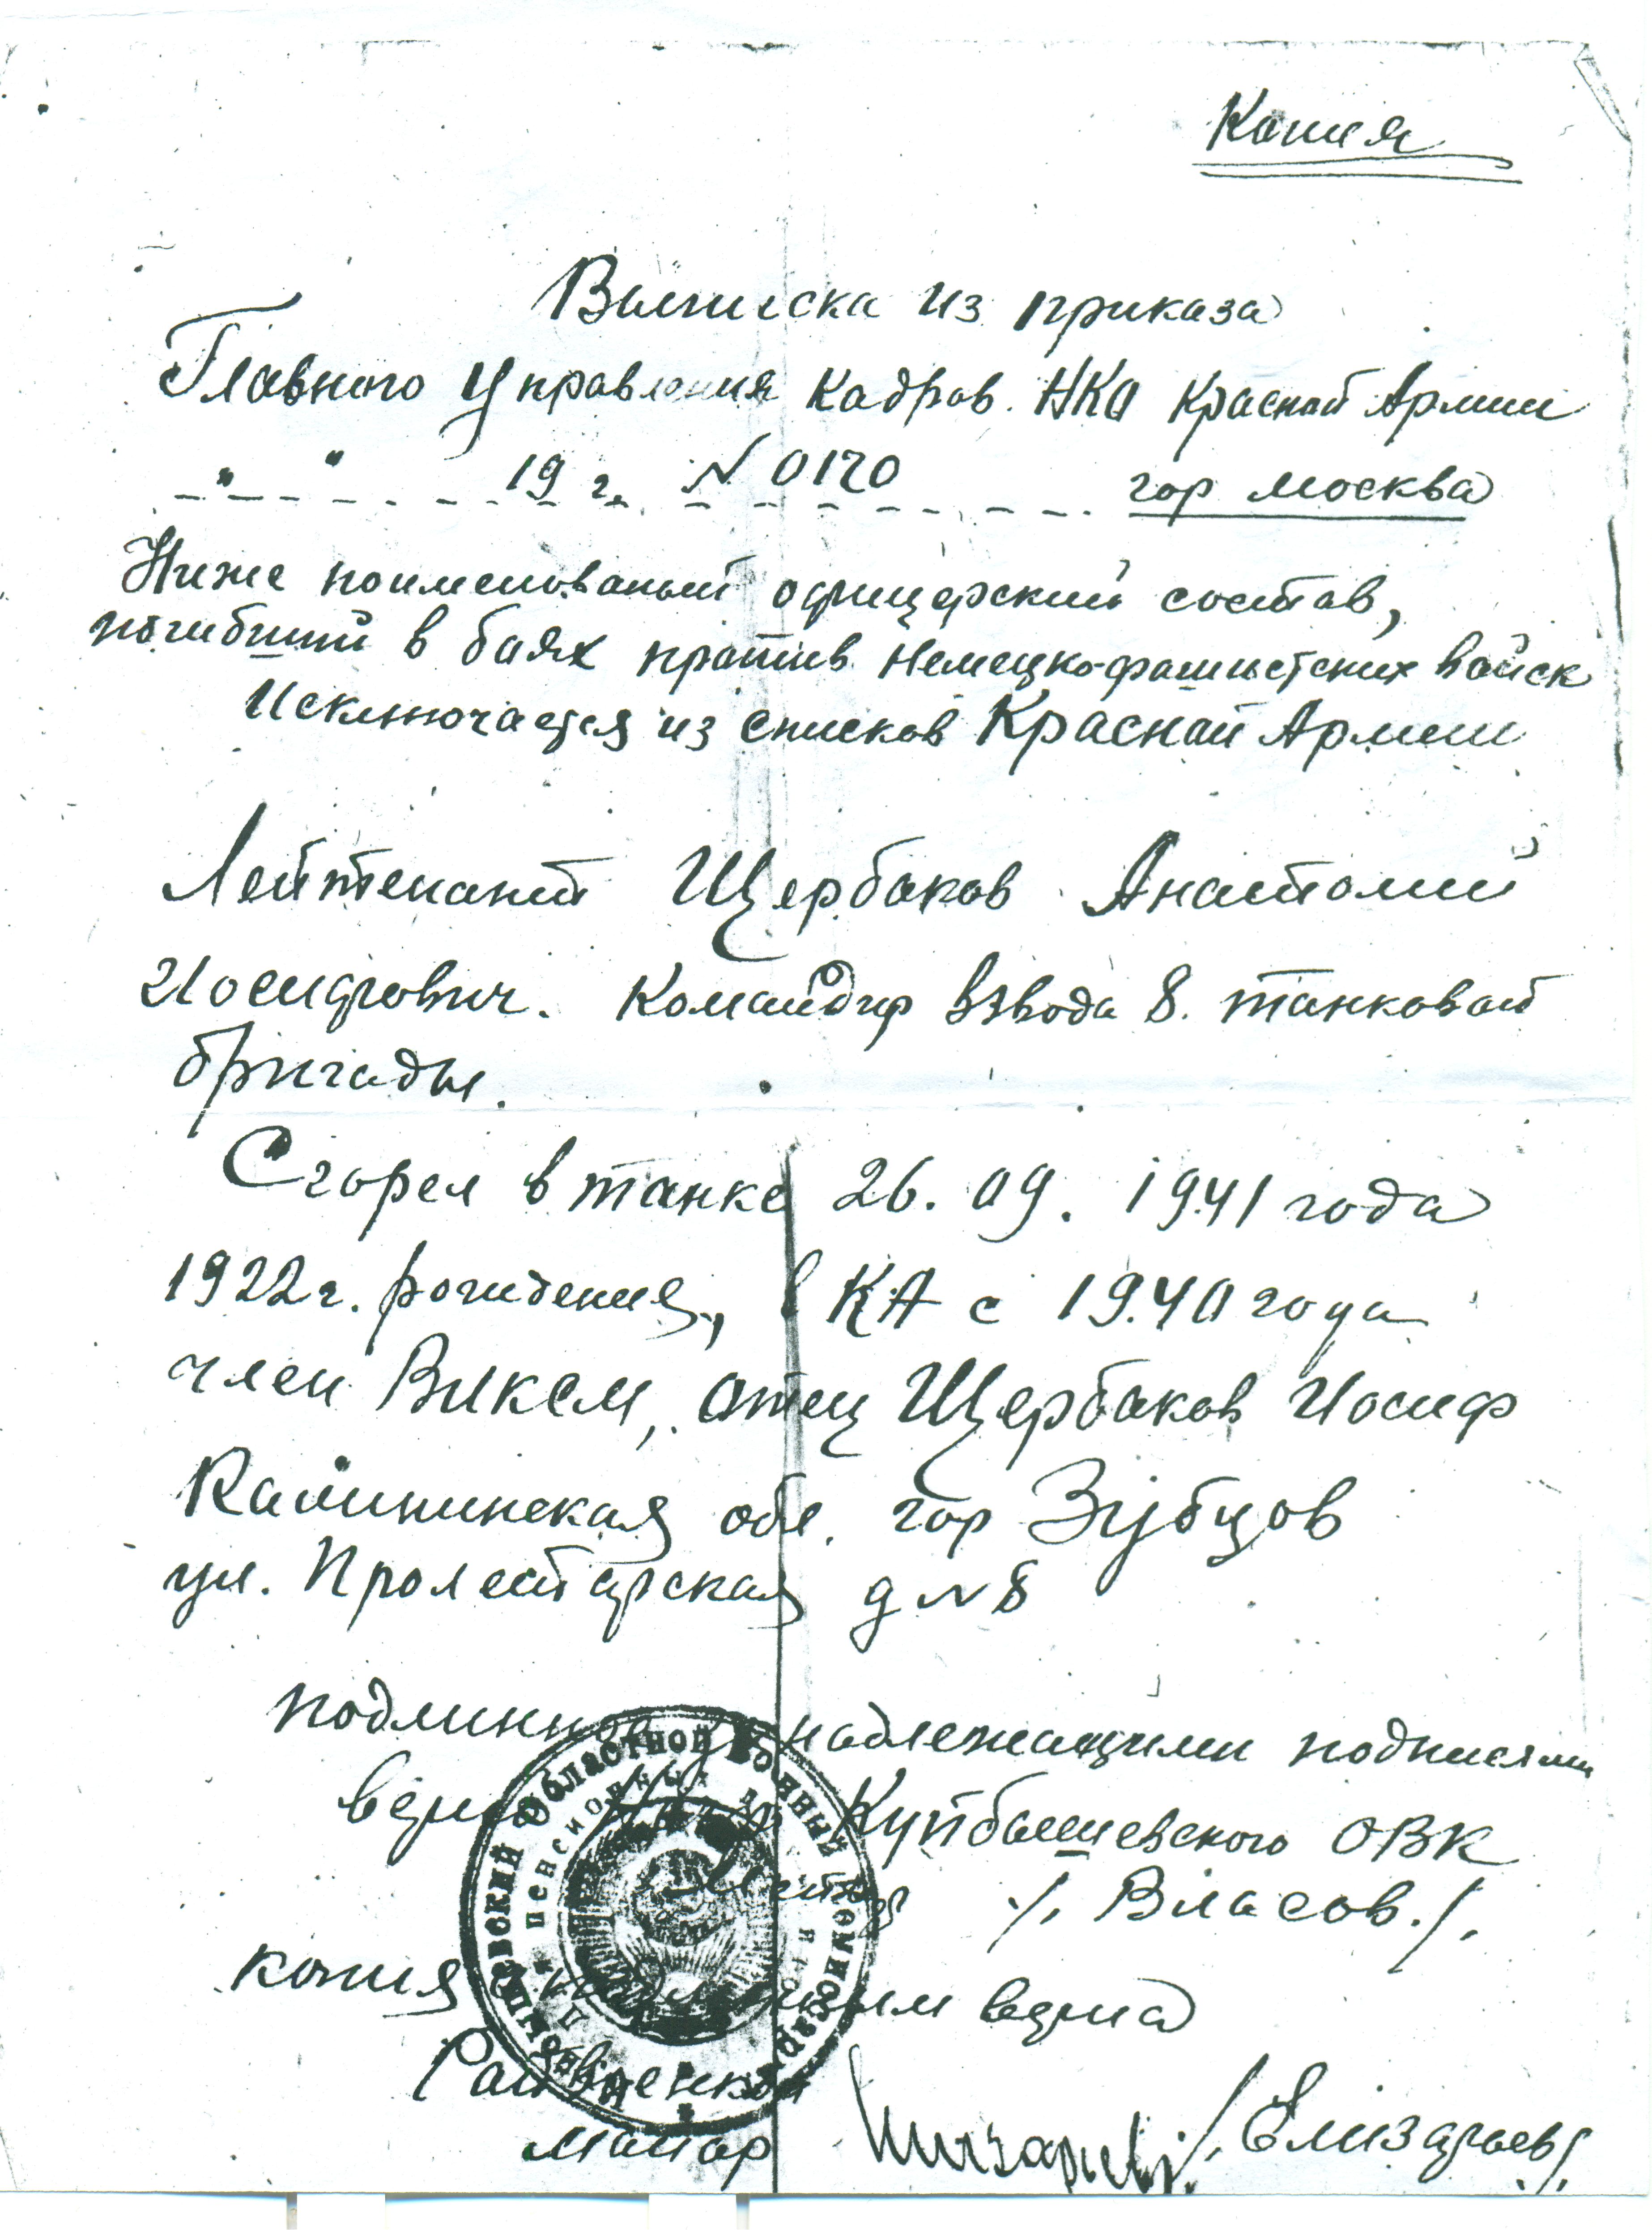 Копия
Выписка из приказа
Главного Управления Кадров НКО Красной Армии
" " 19 г. N 0170 гор Москва
Ниже поименованый офицерский состав,
погибший в баях против немецко-фашистских войск
Исключается из списков Красной Армии
Лейтенант Щербаков Анатолий
Иосифович. Командир взвода 8. танковой
бригады.
Сгорел в танке 26. 09. 1941 года
1922 г. рождения, в КА с 1940 года
член ВЛКСМ, отец Щербаков Иосиф
Калининская обл. гор Зубцов
ул. Пролетарская д N 8
подлинное надлежащими подписями
верно Куйбышевского ОВК
/. Власов./.
копия верна
Райвоенком
майор /. Елизарьев/.
Куйбышевский Областной Военный Комиссариат